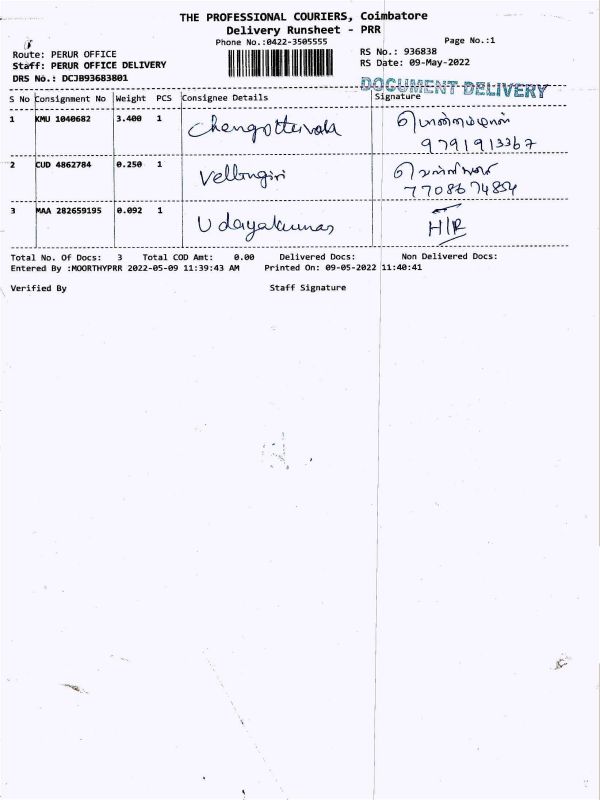 THE PROFESSIONAL COURIERS, Coimbatore
Delivery Runsheet - PRR
Phone No.:0422-3505555
Page No.:1
Route: PERUR OFFICE
RS No.: 936838
Staff: PERUR OFFICE DELIVERY
RS Date: 09-May-2022
DRS No.: DCJB93683801
DOCUMENT DELIVERY
S No Consignment No Weight PCS Consignee Details Signature
1 KMU 1040682 3.400 1
9791913367
2 CUD 4862784 0.250 1 Vellingiri
7708674854
3 MAA 282659195 0.092 1 Udayakumar H/R
Total No. Of Docs: 3 Total COD Amt: 0.00 Delivered Docs: Non Delivered Docs:
Entered By :MOORTHYPRR 2022-05-09 11:39:43 AM Printed On: 09-05-2022 11:40:41
Verified By Staff Signature